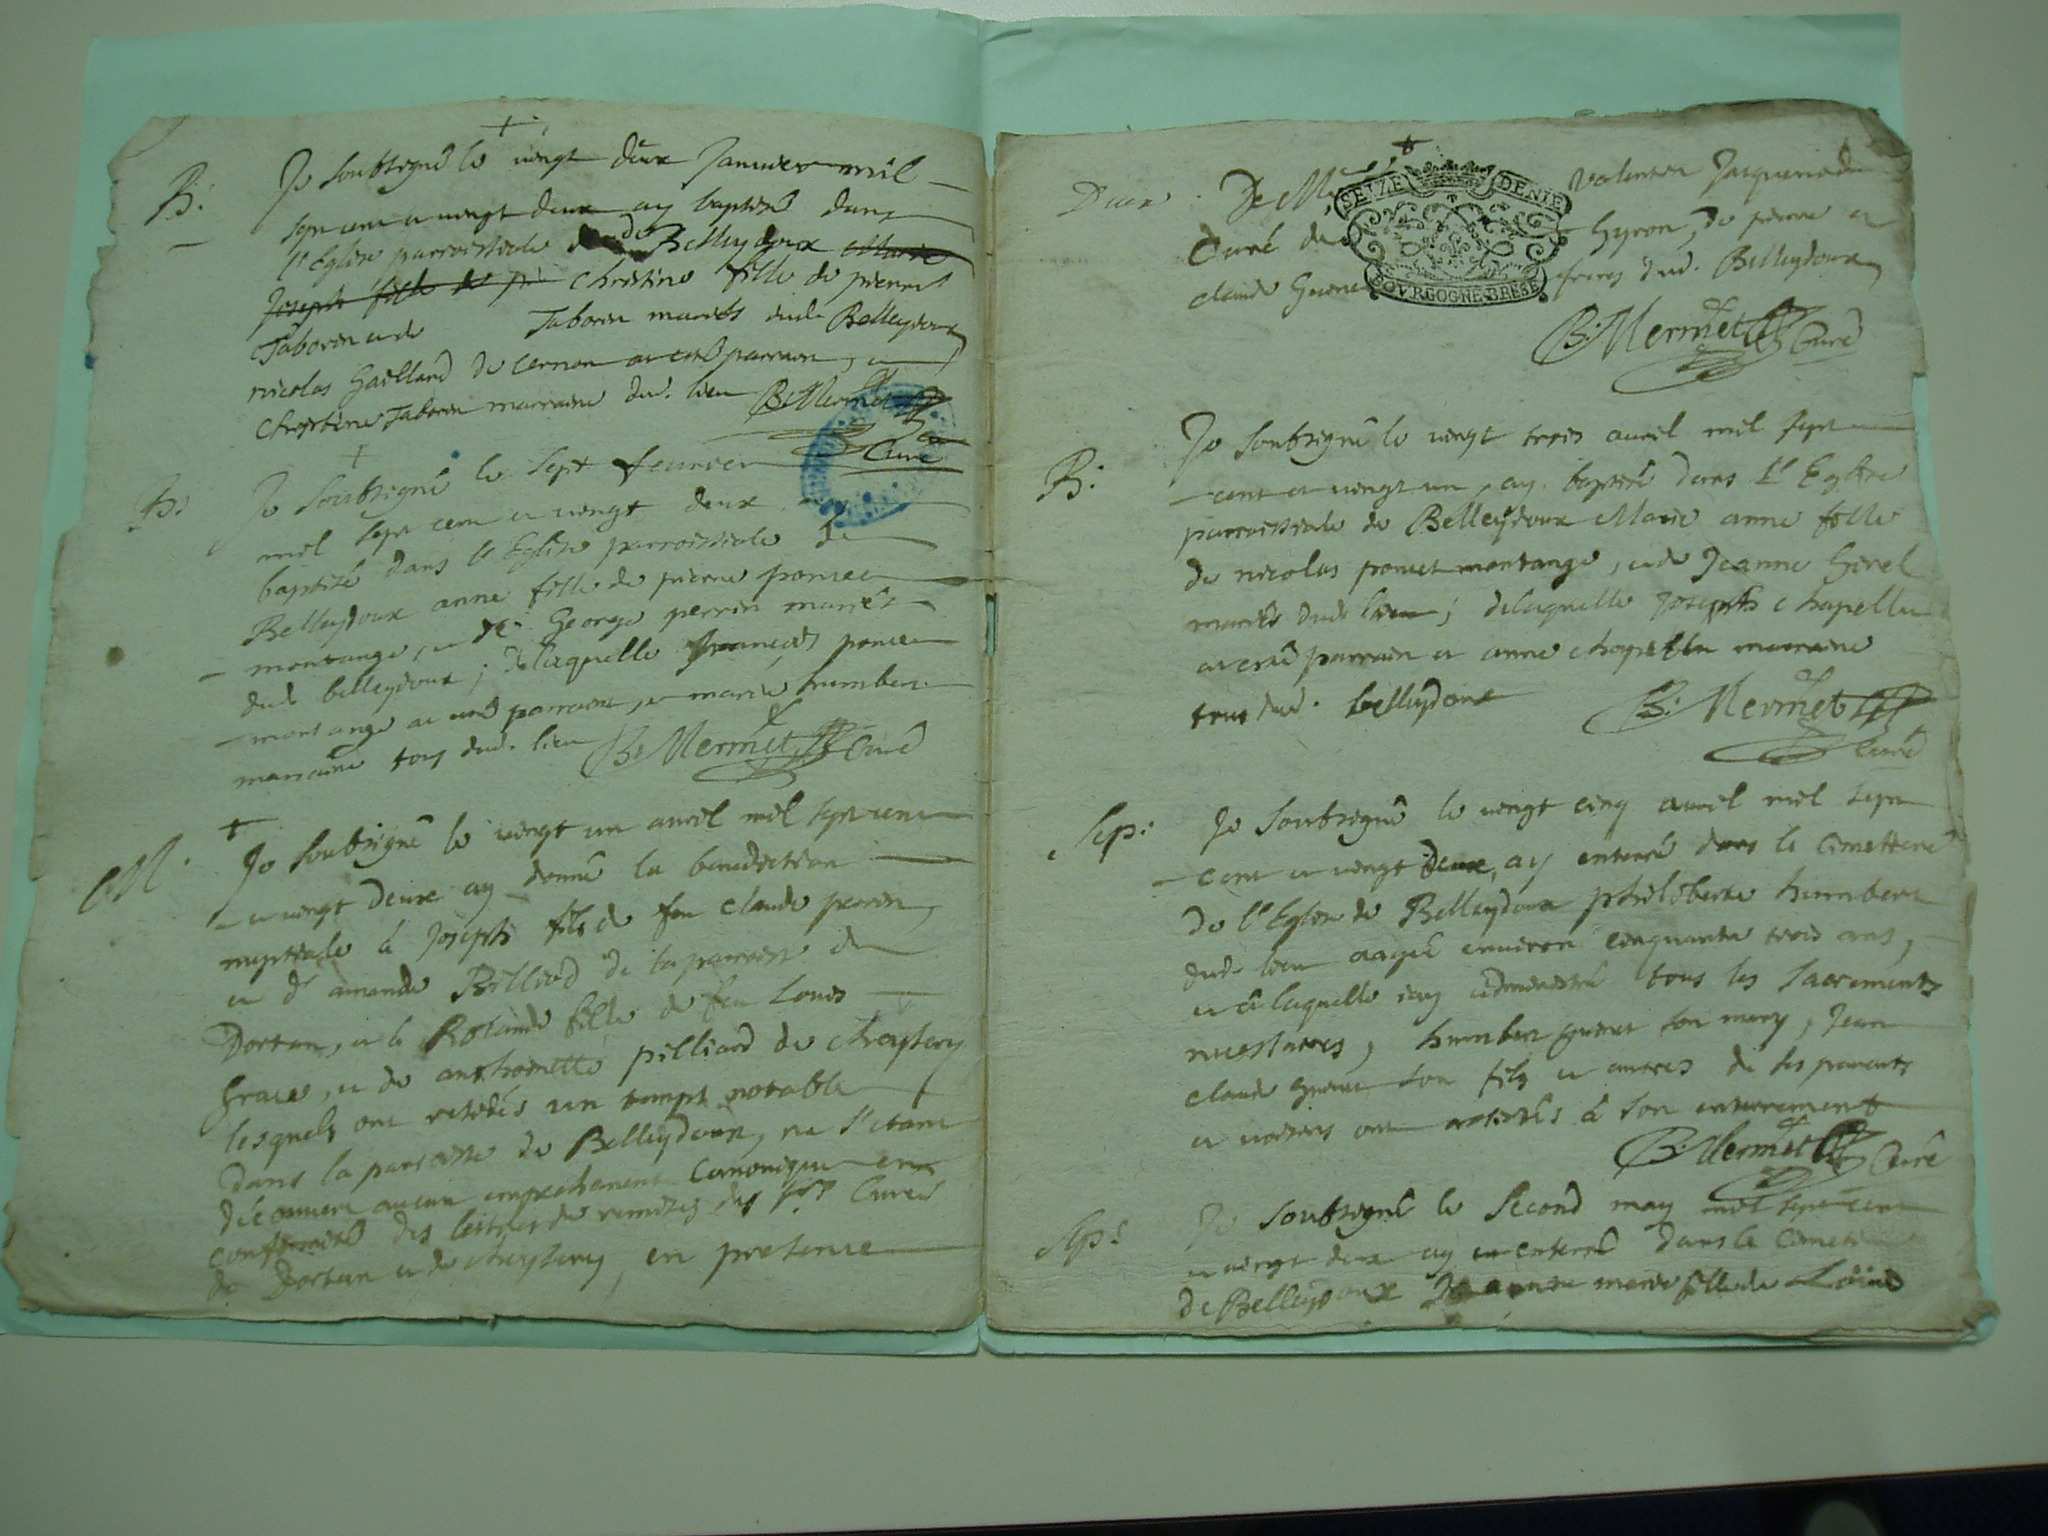 B: Je soubsigné le vingt deux Januier mil
sept cent et vingt deux ay baptisé dans
l'Eglise parroissiale de Belleydoux Marie
Joseph fille de pi Christine fille de pierre
Taborin et de Taborin mariés dud. Belleydoux
nicolas Gailland de cernon a esté parrain, et
Christine Taborin marraine dud. lieu B: Mermet
Curé
B: Je soubsigné le sept feurier
mil sept cent et vingt deux ay
baptisé dans l'Eglise parroissiale de
Belleydoux anne fille de pierre poncet
montange, et de George perrin mariés
dud. belleydoux; de laquelle françois poncet
montange a esté parrain, et marie humbert
marraine tous dud. lieu B: Mermet Curé
M. Je soubsigné le vingt un auril mil sept cent
et vingt Deux ay donné la benediction
nuptiale à Joseph fils de feu claude perrin,
et d' amande Billiod de la parroisse de
Dortan, et à Rolande fille de feu Louis
, et de anthoinette pilliard de
lesquels ont residés un temps notable
dans la parroisse de Belleydoux, ne s'etant
découuert aucun empechement canonique
des lettres de remises des srs Curés
de Dortan et de , en presence
De Mre Valentin Jacquinod
SEIZE DENIE
Curé de Gyron, de pierre et
claude freres dud. Belleydoux
BOVRGOGNE BRESE
B: Mermet Curé
B: Je soubsigné le vingt trois auril mil sept
cent et vingt un, ay baptisé dans l'Eglise
parroissiale de Belleydoux Marie anne fille
de nicolas poncet montange, et de Jeanne Gorel
mariés dud. lieu; de laquelle Joseph chapellu
a esté parrain et anne chapellu marraine
tous dud. belleydoux B: Mermet
Curé
Sep: Je soubsigné le vingt cinq auril mil sept
cent et vingt deux, ay enterré dans le cimettiere
de l'Eglise de Belleydoux philiberte humbert
dud. lieu aagée enuiron cinquante trois ans,
et à laquelle iay administré tous les sacrements
necessaires, humbert son mary, Jean
claude son fils et autres de ses parents
et voisins ont assistés à son enterrement
B: Mermet Curé
Sep: Je soubsigné le second may mil sept cent
et vingt deux ay enterré dans le cimetiere
de Belleydoux marie fille de